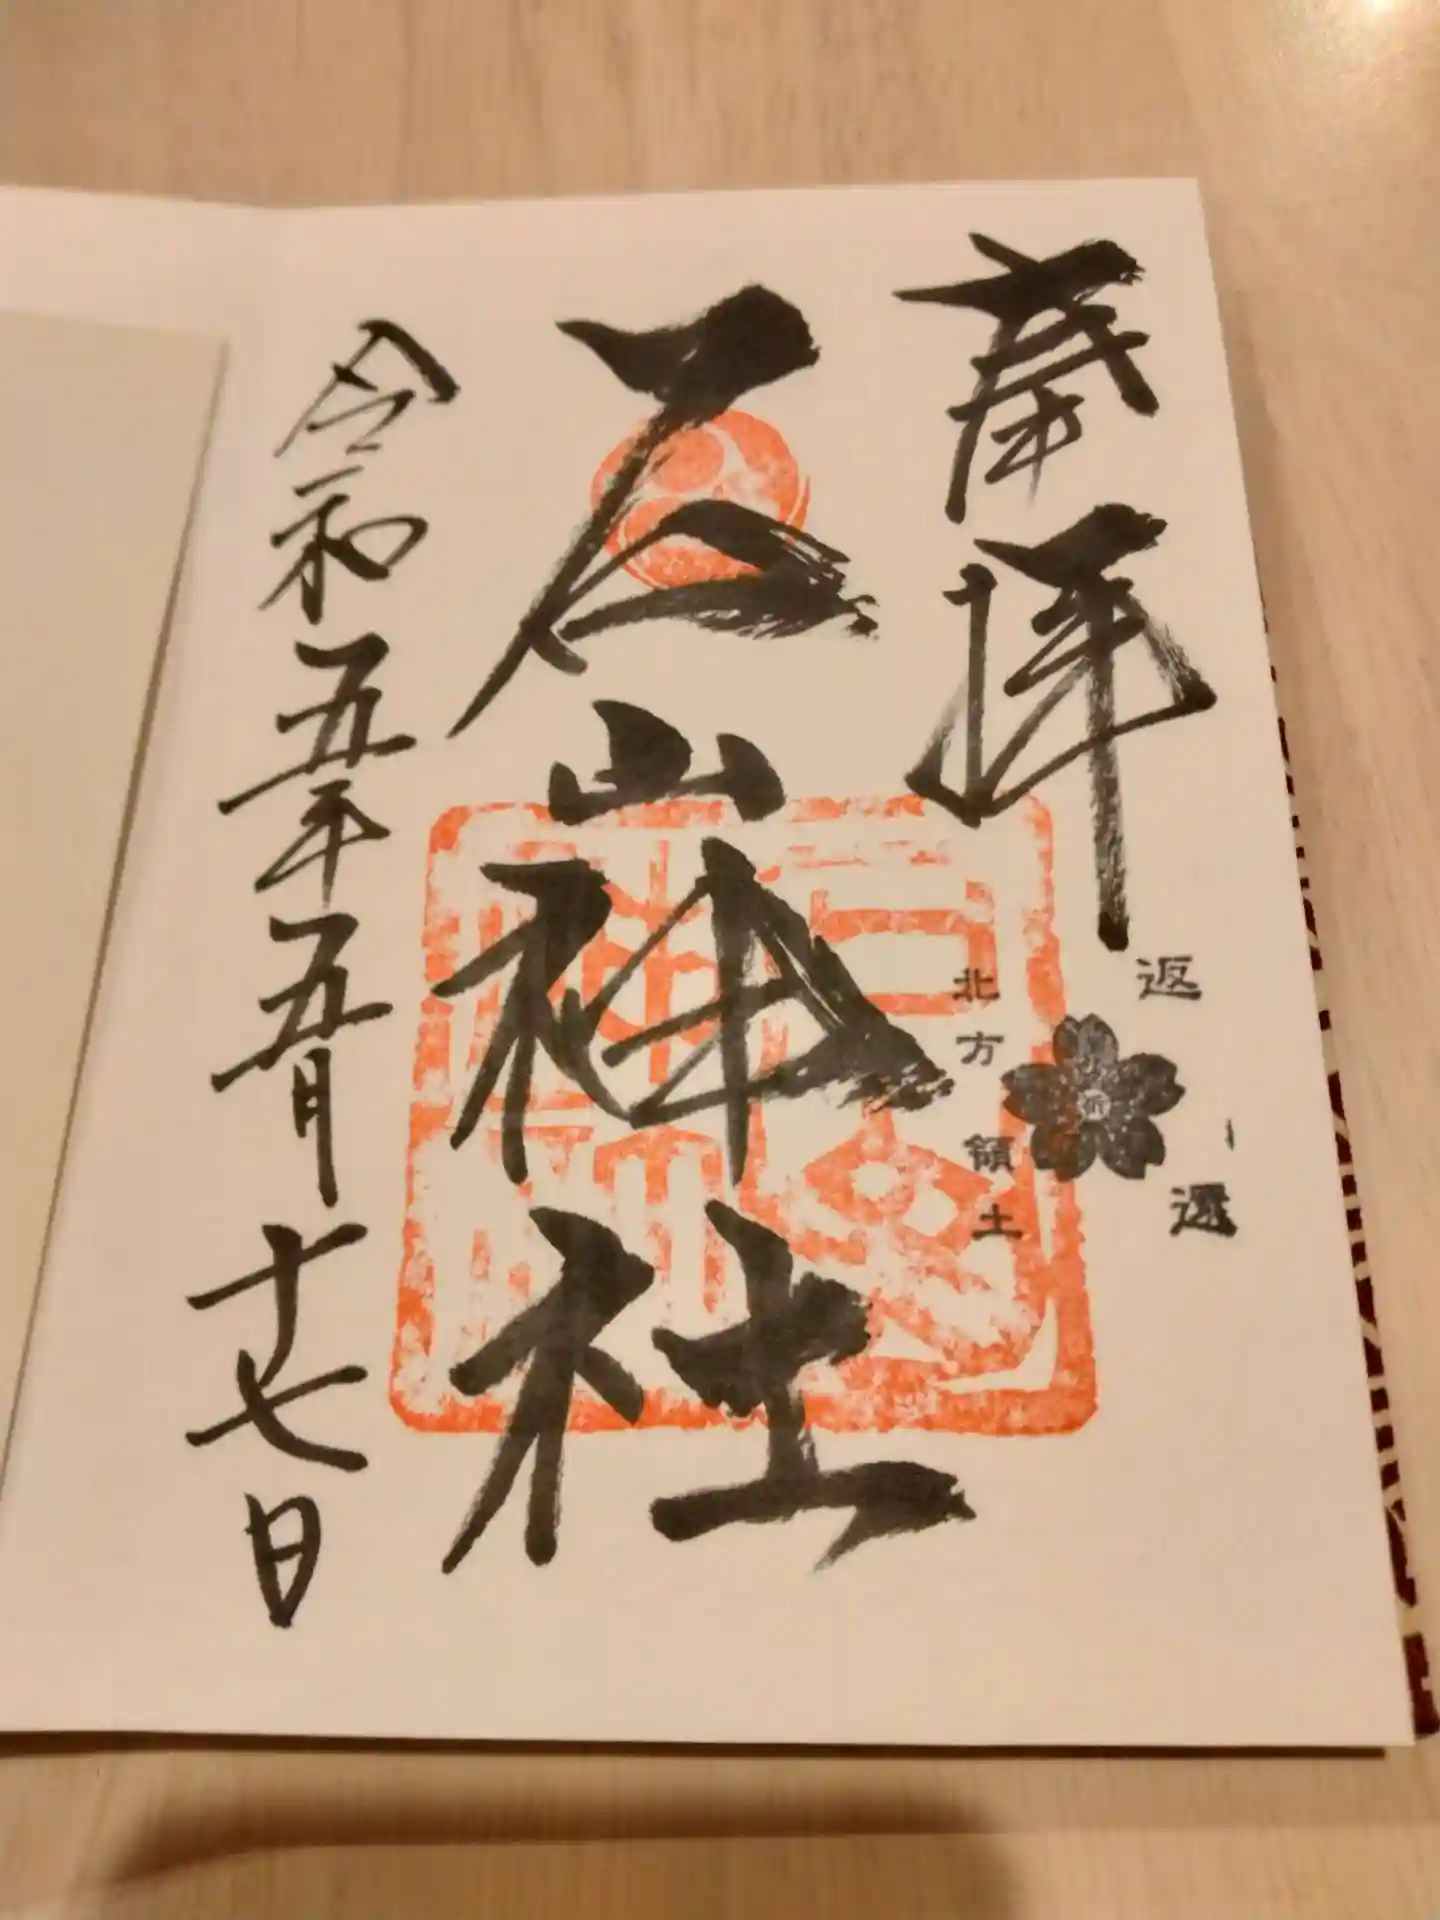 奉拝
返還
祈
北方領土
石山神社
令和五年五月十七日